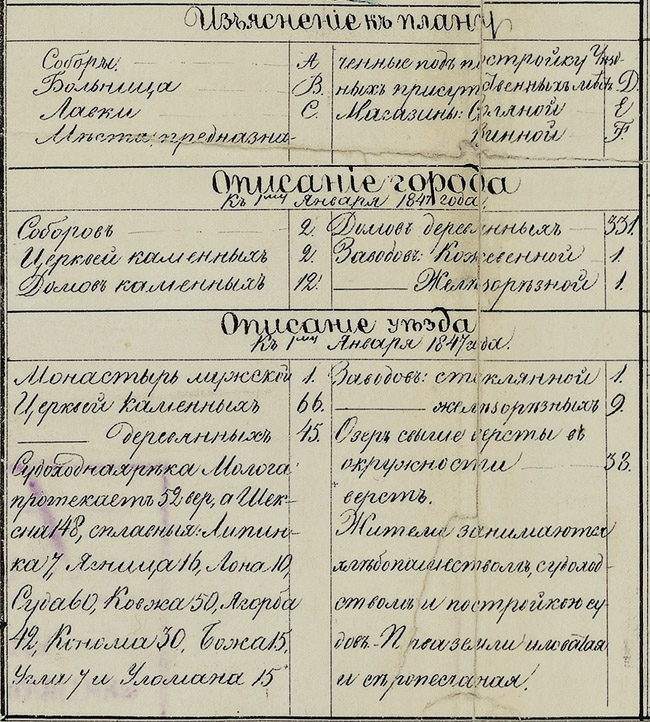 Изъясненіе къ плану
Соборы. A
Больница B.
Лавки C.
Мѣста, предназна-
ченные подъ постройку Уѣзд-
ныхъ присутственныхъ мѣстъ D.
Магазины: Соляной E
Винной F.
Описаніе города
Къ 1му Января 1847 года.
Соборовъ 2.
Церквей каменныхъ 2.
Домовъ каменныхъ 12.
Домовъ деревянныхъ 331.
Заводовъ: Кожевенной 1.
Желѣзорѣзной 1.
Описаніе уѣзда
Къ 1му Января 1847 года.
Монастырь мужской 1.
Церквей каменныхъ 66.
деревянныхъ 45.
Судоходная рѣка Молога
протекаетъ 52 вер, а Шек-
сна 148, сплавныя: Липин-
ка 7, Ягница 16, Лона 10,
Суда 60, Ковжа 50, Ягорба
42, Конома 30, Божа 15,
Угла 7 и Уломана 15
Заводовъ: стеклянной 1.
желѣзорѣзныхъ 9.
Озеръ свыше версты въ
окружности 38.
верстъ.
Жители занимаются
хлѣбопашествомъ, судоход-
ствомъ и постройкою су-
довъ. Грязь земли иловатая
и сѣропесчаная.